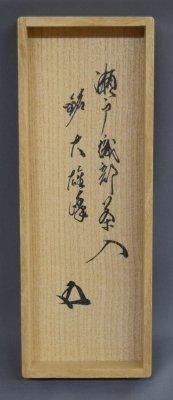 瀬戸織部茶入
銘 大雄峯